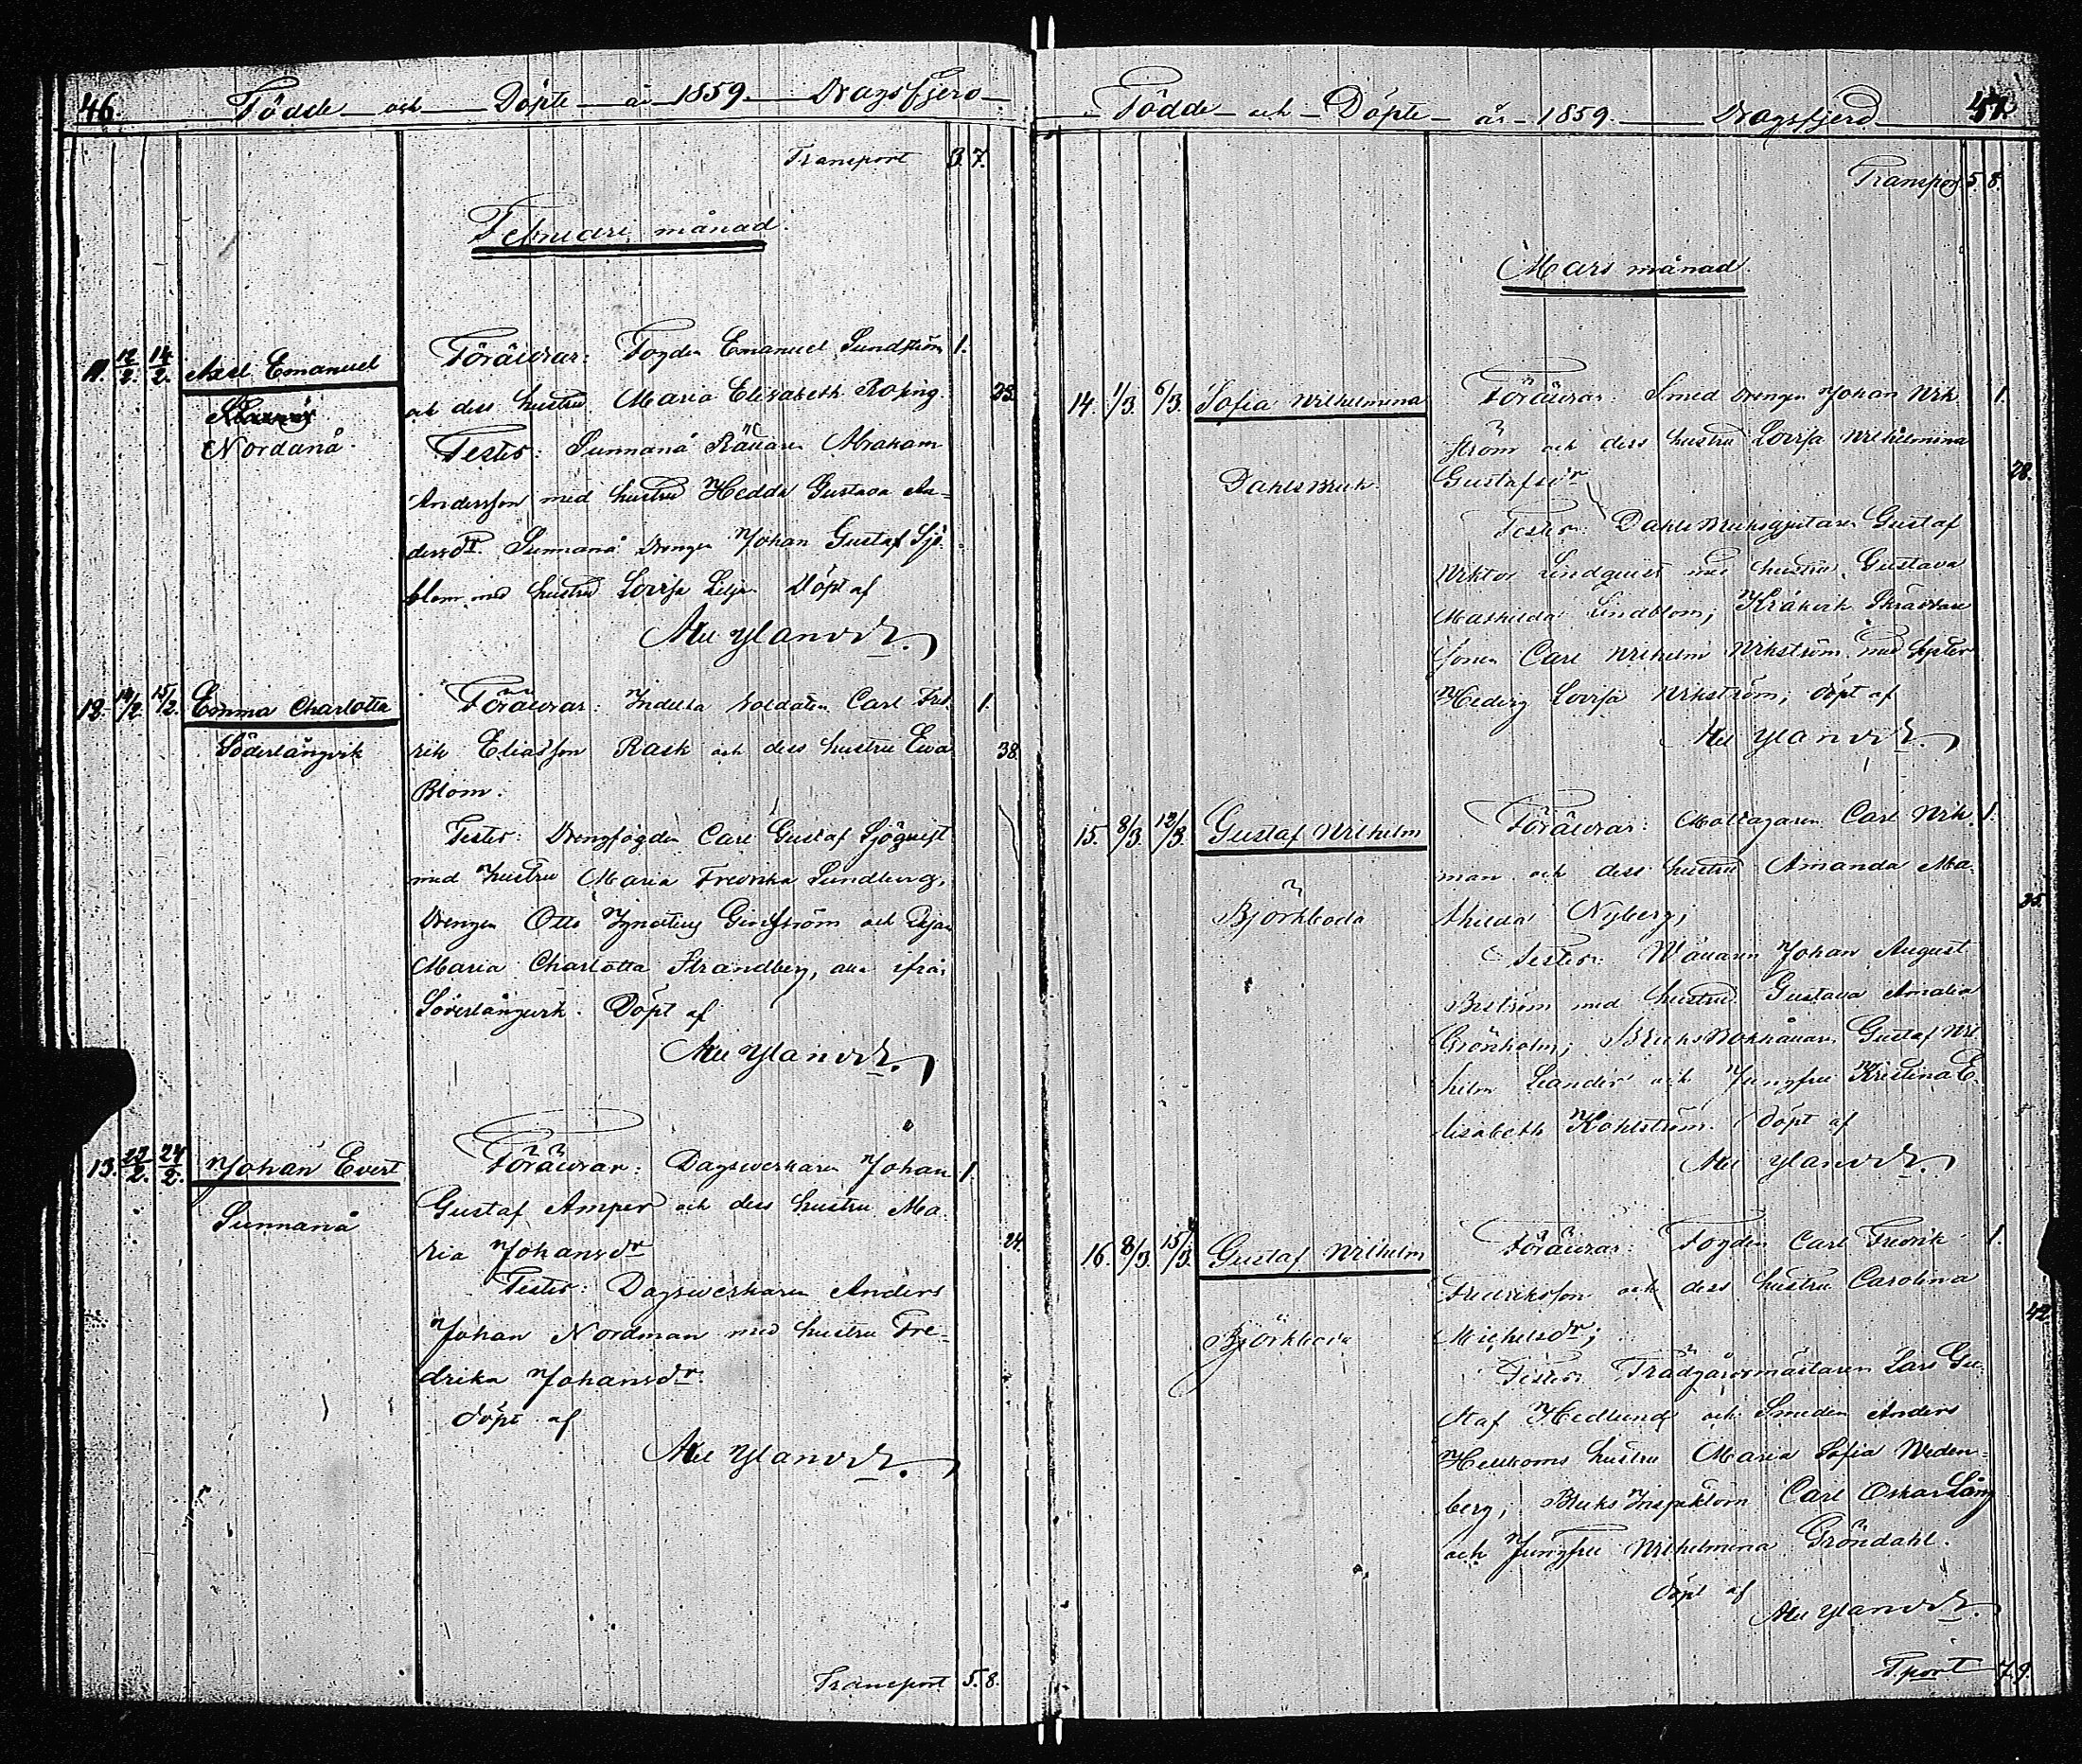 46. Födde och Döpte år 1859. Dragsfjerd
Transport 3. 7.
Februari månad.
11. 12/2. 14/2. Axel Emanuel
Nordanå.
Föräldrar: Fogden Emanuel Sundström 1.
och dess hustru Maria Elisabeth Roping. 23.
Testes: Sunnanå Rättaren Abraham
Andersson med hustru Hedda Gustava An-
dersdr. Sunnanå Drengen Johan Gustaf Sjö-
blom med hustru Lovisa Lilja. Döpt af
12. 14/2. 15/2. Emma Charlotta
Söderlångvik
Föräldrar: Indelta Soldaten Carl Fred- 1.
rik Eliasson Rask och dess hustru Eva 38.
Blom.
Testes: Drengfogden Carl Gustaf Sjöquist
med hustru Maria Fredrika Sundberg,
Drengen Otto Ignatius Grönström och Pigan
Maria Charlotta Strandberg, alla ifrån
Söderlångvik. Döpt af
13. 22/2. 24/2. Johan Evert
Sunnanå
Föräldrar: Dagsverkaren Johan 1.
Gustaf Amper och dess hustru Ma-
ria Johansdr 24.
Testes: Dagsverkaren Anders
Johan Nordman med hustru Fre-
drika Johansdr.
döpt af
Transport 5. 8.
Födde och Döpte år 1859. Dragsfjerd 47.
Transport 5. 8.
Mars månad.
14. 1/3. 6/3. Sofia Wilhelmina
Dahlsbruk.
Föräldrar: Smed drengen Johan Wik- 1.
ström och dess hustru Lovisa Wilhelmina
Gustafsdr 28.
Testes: Dahlsbruksgjutaren Gustaf
Wiktor Lindquist med hustru Gustava
Mathilda Lindblom; Kråkvik Skräddare
sonen Carl Wilhelm Wikström med syster
Hedvig Lovisa Wikström; döpt af
15. 8/3. 13/3. Gustaf Wilhelm
Björkboda
Föräldrar: Mottagaren Carl Wik- 1.
man och dess hustru Amanda Ma-
thilda Nyberg; 25.
Testes: Johan August
med hustru Gustava Amalia
Grönholm; Bruks Bokhållaren Gustaf Wil-
helm Leander och Jungfru Kristina E-
lisabeth Kohlström. Döpt af
16. 8/3. 15/3. Gustaf Wilhelm
Björkboda
Föräldrar: Fogden Carl Fredrik 1.
Fredriksson och dess hustru Carolina
Michelsdr; 42.
Testes: Trädgårdsmästaren Lars Gu-
staf Hedlund och Smeden Anders
hustru Maria Sofia Weden-
berg; Bruks Inspektorn Carl Oskar Lång
och Jungfru Wilhelmina Gröndahl.
döpt af
T.port 7. 9.